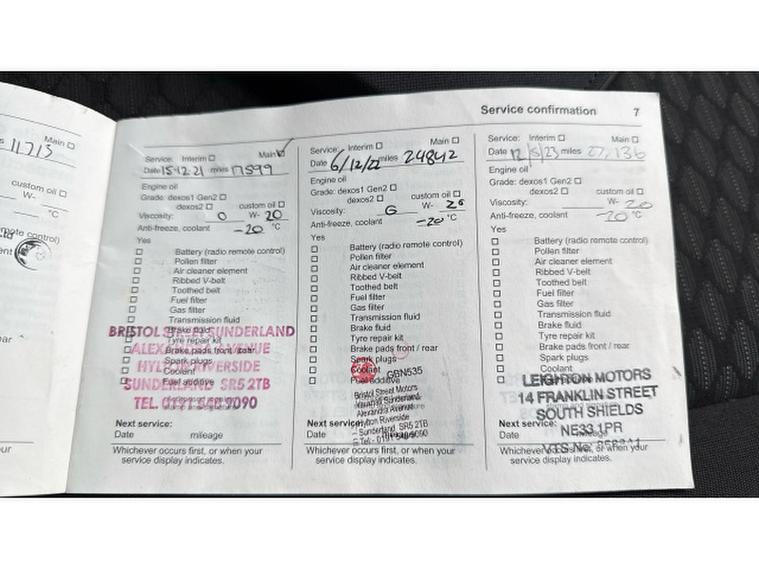 Service confirmation 7
Main
11713
custom oil
W-
°C
Service: Interim Main
Date 15.12.21 miles 17599
Engine oil
Grade: dexos1 Gen2
dexos2 custom oil
Viscosity: 0 W- 20
Anti-freeze, coolant -20 °C
Yes
Battery (radio remote control)
Pollen filter
Air cleaner element
Ribbed V-belt
Toothed belt
Fuel filter
Gas filter
Transmission fluid
Brake fluid
Tyre repair kit
Brake pads front / rear
Spark plugs
Coolant
Fuel additive
BRISTOL STREET SUNDERLAND
ALEXANDRA AVENUE
HYLTON RIVERSIDE
SUNDERLAND SR5 2TB
TEL.
Next service:
Date mileage
Whichever occurs first, or when your
service display indicates.
Service: Interim Main
Date 6/12/22 miles 24842
Engine oil
Grade: dexos1 Gen2
dexos2 custom oil
Viscosity: W-
Anti-freeze, coolant -20 °C
Yes
Battery (radio remote control)
Pollen filter
Air cleaner element
Ribbed V-belt
Toothed belt
Fuel filter
Gas filter
Transmission fluid
Brake fluid
Tyre repair kit
Brake pads front / rear
Spark plugs
Coolant
Fuel additive
GBN535
Bristol Street Motors
Vauxhall Sunderland
Alexandra Avenue
Hylton Riverside
Sunderland SR5 2TB
Next service:
Date mileage
Whichever occurs first, or when your
service display indicates.
Service: Interim Main
Date 12/5/23 miles 27,136
Engine oil
Grade: dexos1 Gen2
dexos2 custom oil
Viscosity: W- 20
Anti-freeze, coolant -20 °C
Yes
Battery (radio remote control)
Pollen filter
Air cleaner element
Ribbed V-belt
Toothed belt
Fuel filter
Gas filter
Transmission fluid
Brake fluid
Tyre repair kit
Brake pads front / rear
Spark plugs
Coolant
LEIGHTON MOTORS
14 FRANKLIN STREET
SOUTH SHIELDS
NE33 1PR
VTS No:
Next service:
Date mileage
Whichever occurs first, or when your
service display indicates.